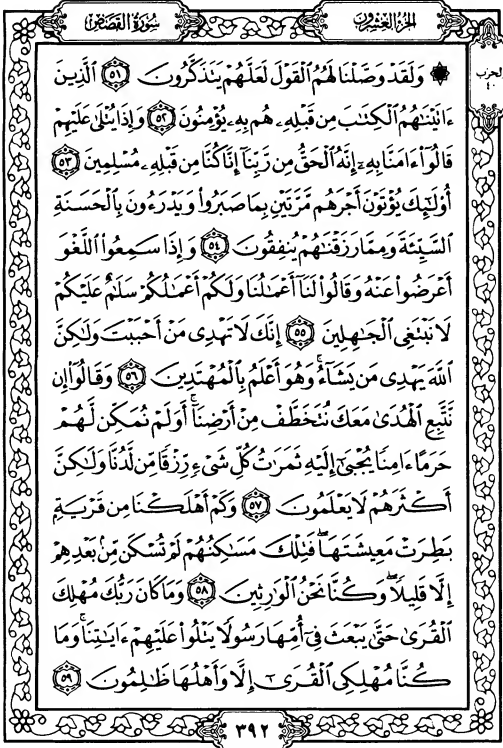 سُورَةُ القَصَصِ
الجُزءُ العِشْرُونَ
الحزب
٤٠
۞ وَلَقَدْ وَصَّلْنَا لَهُمُ ٱلْقَوْلَ لَعَلَّهُمْ يَتَذَكَّرُونَ ٥١ ٱلَّذِينَ
ءَاتَيْنَٰهُمُ ٱلْكِتَٰبَ مِن قَبْلِهِۦ هُم بِهِۦ يُؤْمِنُونَ ٥٢ وَإِذَا يُتْلَىٰ عَلَيْهِمْ
قَالُوٓا۟ ءَامَنَّا بِهِۦٓ إِنَّهُ ٱلْحَقُّ مِن رَّبِّنَآ إِنَّا كُنَّا مِن قَبْلِهِۦ مُسْلِمِينَ ٥٣
أُو۟لَٰٓئِكَ يُؤْتَوْنَ أَجْرَهُم مَّرَّتَيْنِ بِمَا صَبَرُوا۟ وَيَدْرَءُونَ بِٱلْحَسَنَةِ
ٱلسَّيِّئَةَ وَمِمَّا رَزَقْنَٰهُمْ يُنفِقُونَ ٥٤ وَإِذَا سَمِعُوا۟ ٱللَّغْوَ
أَعْرَضُوا۟ عَنْهُ وَقَالُوا۟ لَنَآ أَعْمَٰلُنَا وَلَكُمْ أَعْمَٰلُكُمْ سَلَٰمٌ عَلَيْكُمْ
لَا نَبْتَغِى ٱلْجَٰهِلِينَ ٥٥ إِنَّكَ لَا تَهْدِى مَنْ أَحْبَبْتَ وَلَٰكِنَّ
ٱللَّهَ يَهْدِى مَن يَشَآءُ ۚ وَهُوَ أَعْلَمُ بِٱلْمُهْتَدِينَ ٥٦ وَقَالُوٓا۟ إِن
نَّتَّبِعِ ٱلْهُدَىٰ مَعَكَ نُتَخَطَّفْ مِنْ أَرْضِنَآ ۚ أَوَلَمْ نُمَكِّن لَّهُمْ
حَرَمًا ءَامِنًا يُجْبَىٰٓ إِلَيْهِ ثَمَرَٰتُ كُلِّ شَىْءٍ رِّزْقًا مِّن لَّدُنَّا وَلَٰكِنَّ
أَكْثَرَهُمْ لَا يَعْلَمُونَ ٥٧ وَكَمْ أَهْلَكْنَا مِن قَرْيَةٍۭ
بَطِرَتْ مَعِيشَتَهَا ۖ فَتِلْكَ مَسَٰكِنُهُمْ لَمْ تُسْكَن مِّنۢ بَعْدِهِمْ
إِلَّا قَلِيلًا ۖ وَكُنَّا نَحْنُ ٱلْوَٰرِثِينَ ٥٨ وَمَا كَانَ رَبُّكَ مُهْلِكَ
ٱلْقُرَىٰ حَتَّىٰ يَبْعَثَ فِىٓ أُمِّهَا رَسُولًا يَتْلُوا۟ عَلَيْهِمْ ءَايَٰتِنَا ۚ وَمَا
كُنَّا مُهْلِكِى ٱلْقُرَىٰٓ إِلَّا وَأَهْلُهَا ظَٰلِمُونَ ٥٩
٣٩٢